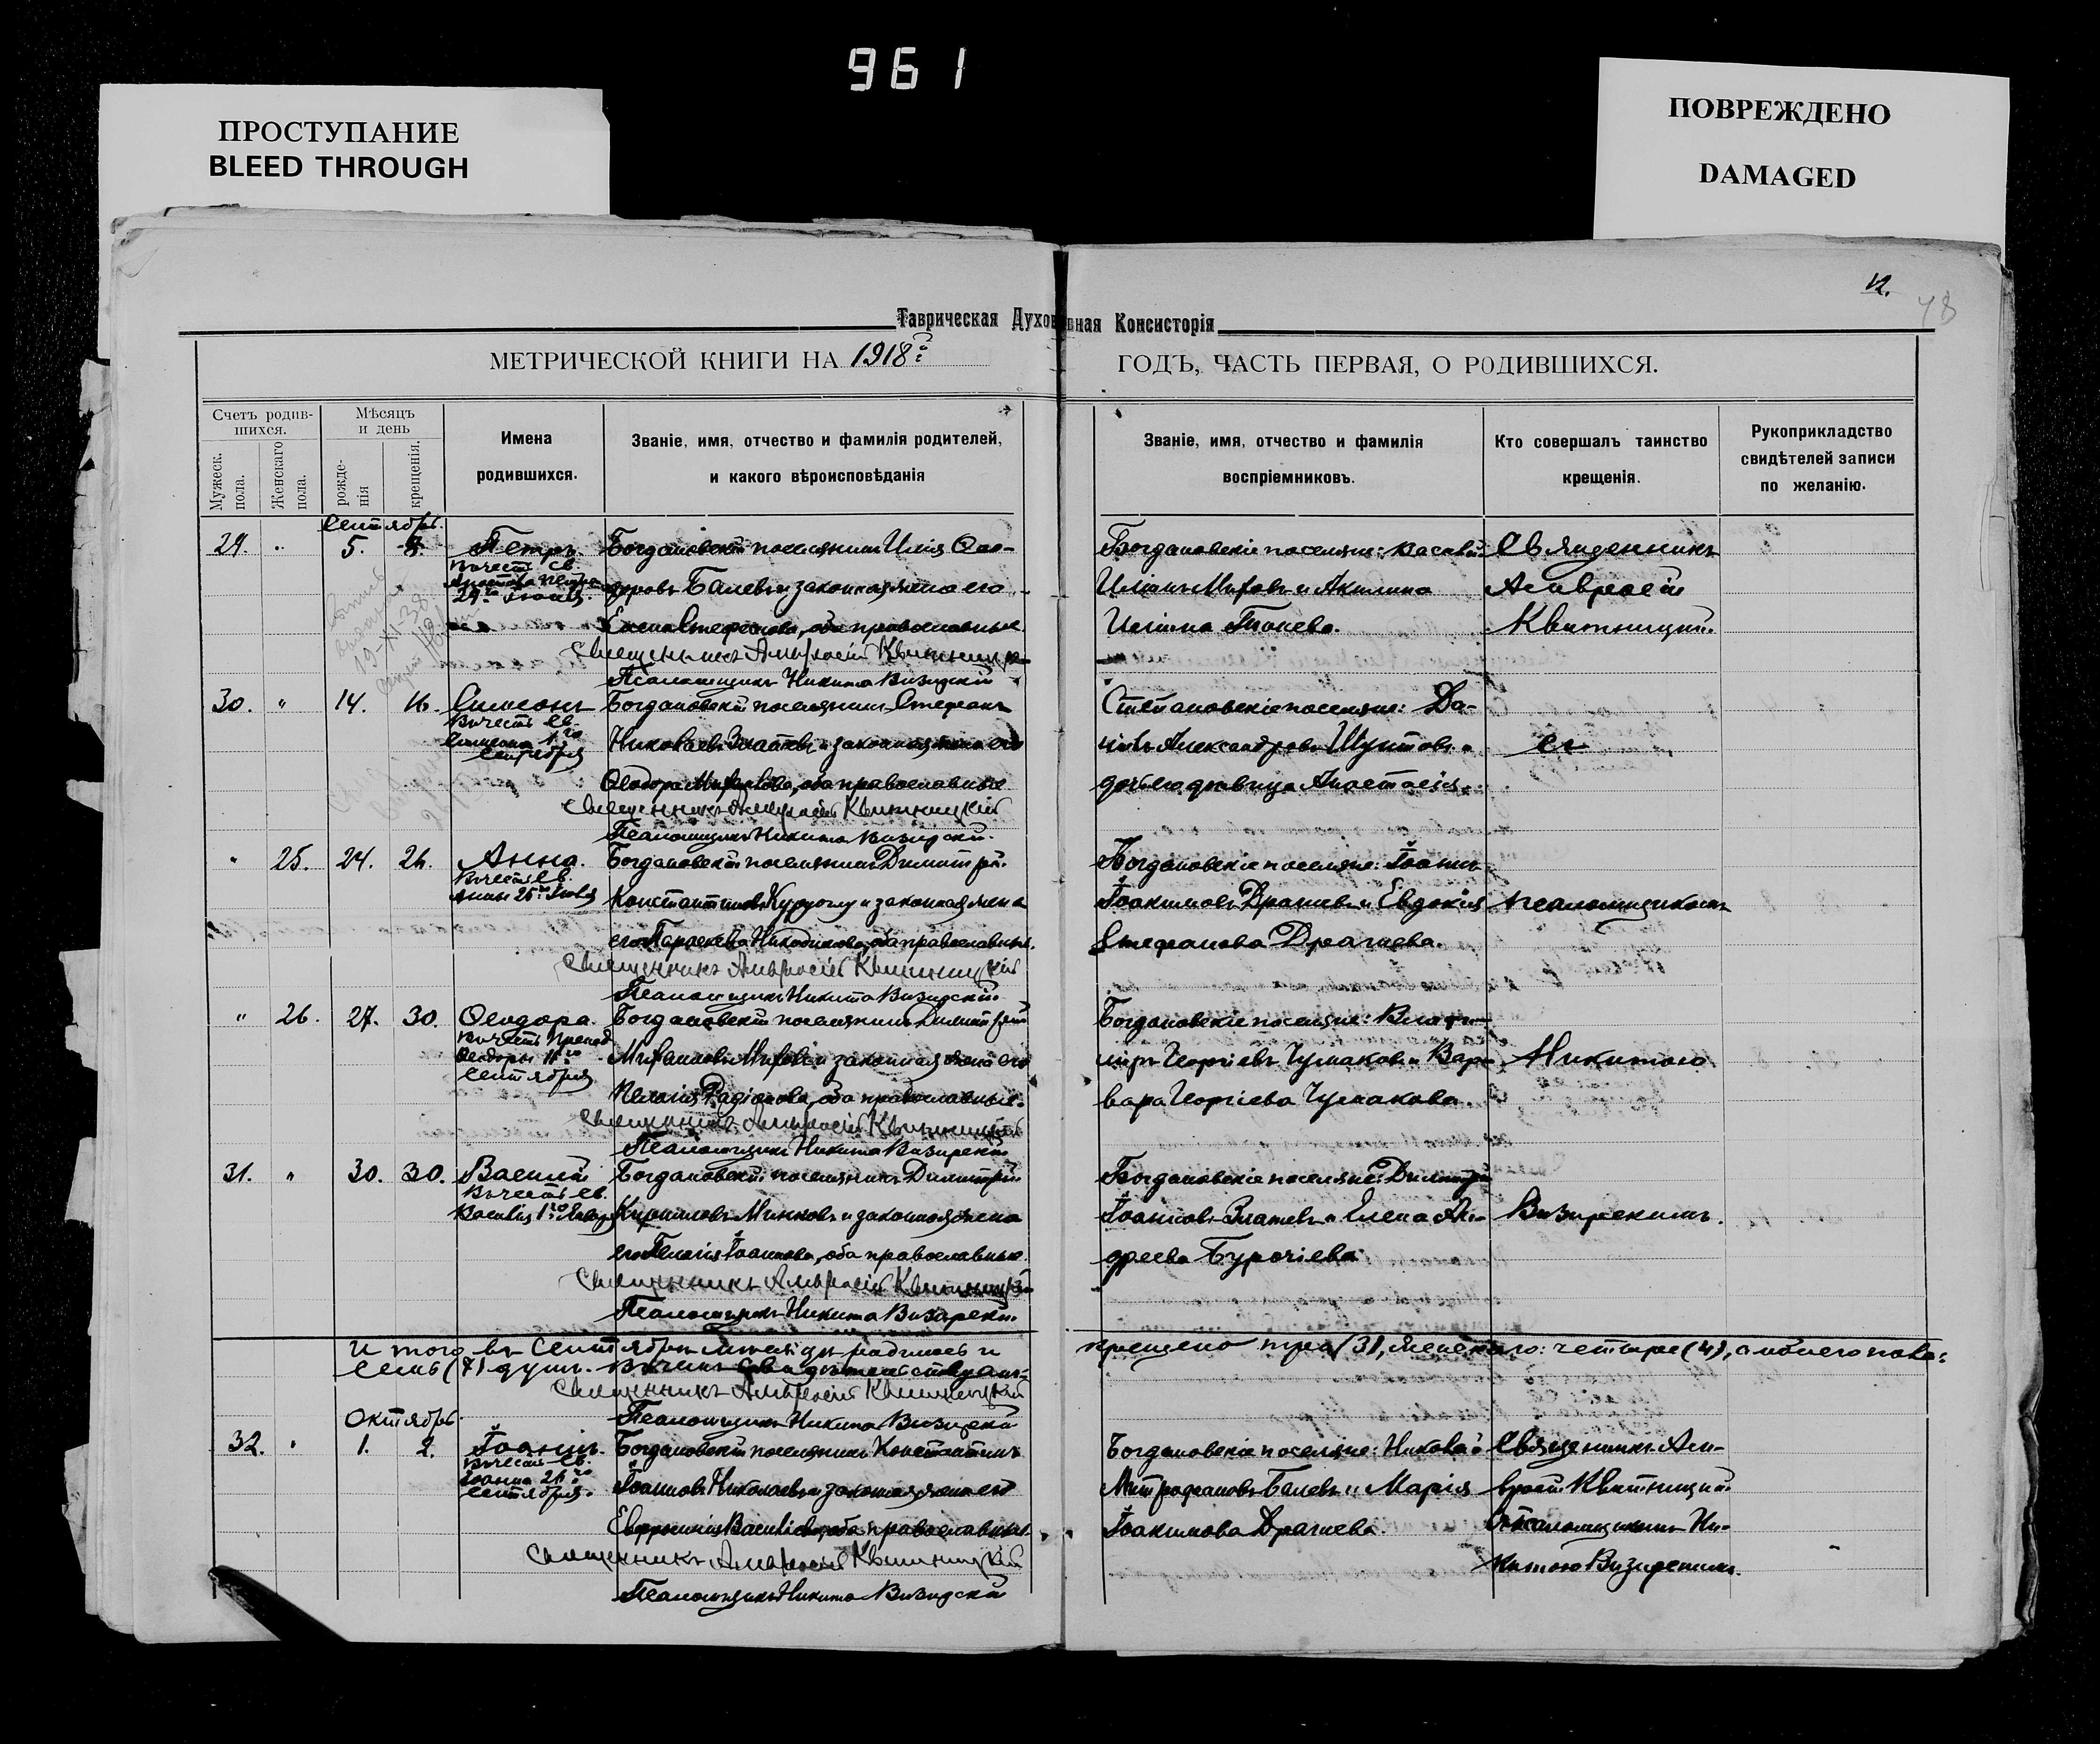 961
ПРОСТУПАНИЕ
BLEED THROUGH
ПОВРЕЖДЕНО
DAMAGED
12.
48
Таврическая Духовная Консисторія
МЕТРИЧЕСКОЙ КНИГИ НА 1918
ГОДЪ, ЧАСТЬ ПЕРВАЯ, О РОДИВШИХСЯ.
Счетъ родив-
шихся.
Мужеск. пола.
Женскаго пола.
Мѣсяцъ
и день
рожде-
нія
крещенія.
Имена
родившихся.
Званіе, имя, отчество и фамилія родителей,
и какого вѣроисповѣданія
Званіе, имя, отчество и фамилія
воспріемниковъ.
Кто совершалъ таинство
крещенія.
Рукоприкладство
свидѣтелей записи
по желанію.
Сентябрь.
29. " 5. 8. Петръ. Богдановскій поселянинъ Илія Ѳео-
Въ честь Св.
Апостола Петра
29го Іюня.
доровъ Балевъ и законная жена его
Елена Стефанова, оба православные.
Священникъ Амвросій Квитницкій
Псаломщикъ Никита Визирскій
Богдановскіе поселяне: Василій
Иліинъ Мифовъ и Акилина
Иліина Танева.
Священникъ
Амвросій
Квитницкій
30. " 14. 16. Симеонъ Богдановскій поселянинъ Стефанъ
Въ честь Св.
Симеона 1го
Сентября
Николаевъ Златевъ и законная жена его
Ѳеодора Мифаилова, оба православные.
Священникъ Амвросій Квитницкій
Псаломщикъ Никита Визирскій.
Степановскіе поселяне: Да-
ніилъ Александровъ Шуптовъ и
дочь его дѣвица Анастасія.
съ
" 25. 24. 26. Анна. Богдановскій поселянинъ Димитрій
Въ честь Св.
Анны 25го Іюля
Константиновъ Курдоглу и законная жена
его Параскева Никодимова, оба православные.
Священникъ Амвросій Квитницкій
Псаломщикъ Никита Визирскій.
Богдановскіе поселяне: Іоаннъ
Іоакимовъ Драгневъ и Евдокія
Стефанова Драгнева.
псаломщикомъ
" 26. 27. 30. Ѳеодора. Богдановскій поселянинъ Димитрій
Въ честь Препод.
Ѳеодоры 11го
Сентября
Мифаиловъ Мифовъ и законная жена его
Пелагія Радіонова, оба православные.
Священникъ Амвросій Квитницкій
Псаломщикъ Никита Визирскій
Богдановскіе поселяне: Влади-
міръ Георгіевъ Чумаковъ и Вар-
вара Георгіева Чумакова.
Никитою
31. " 30. 30. Василій Богдановскій поселянинъ Димитрій
Въ честь Св.
Василія 1го Янв.
Кирилловъ Минковъ и законная жена
его Пелагія Іоаннова, оба православные.
Священникъ Амвросій Квитницкій
Псаломщикъ Никита Визирскій.
Богдановскіе поселяне: Димитрій
Іоанновъ Златевъ и Елена Ан-
дреева Бурочіева.
Визирскимъ.
Итого въ Сентябрѣ мѣсяцѣ родилось и
крещено три (3), женскаго: четыре (4), а обоего пола:
семь (7) душъ. Въ чемъ свидѣтельствуемъ:
Священникъ Амвросій Квитницкій
Псаломщикъ Никита Визирскій
Октябрь.
32. " 1. 2. Іоаннъ. Богдановскій поселянинъ Константинъ
Въ честь Св.
Іоанна 26го
Сентября.
Іоанновъ Николаевъ и законная жена его
Евфросинія Василіева, оба православные.
Священникъ Амвросій Квитницкій
Псаломщикъ Никита Визирскій
Богдановскіе поселяне: Николай
Митрофановъ Балевъ и Марія
Іоакимова Драгнева.
Священникъ Ам-
вросій Квитницкій
съ псаломщикомъ Ни-
китою Визирскимъ.